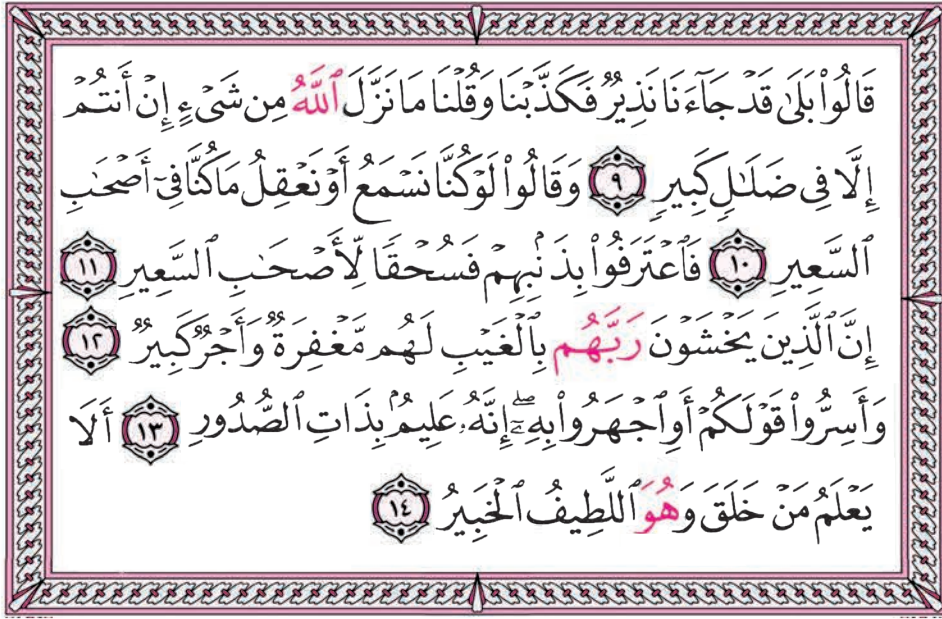 قَالُوا۟ بَلَىٰ قَدۡ جَآءَنَا نَذِيرٞ فَكَذَّبۡنَا وَقُلۡنَا مَا نَزَّلَ ٱللَّهُ مِن شَيۡءٍ إِنۡ أَنتُمۡ
إِلَّا فِي ضَلَٰلٖ كَبِيرٖ ٩ وَقَالُوا۟ لَوۡ كُنَّا نَسۡمَعُ أَوۡ نَعۡقِلُ مَا كُنَّا فِيٓ أَصۡحَٰبِ
ٱلسَّعِيرِ ١٠ فَٱعۡتَرَفُوا۟ بِذَنۢبِهِمۡ فَسُحۡقٗا لِّأَصۡحَٰبِ ٱلسَّعِيرِ ١١
إِنَّ ٱلَّذِينَ يَخۡشَوۡنَ رَبَّهُم بِٱلۡغَيۡبِ لَهُم مَّغۡفِرَةٞ وَأَجۡرٞ كَبِيرٞ ١٢
وَأَسِرُّوا۟ قَوۡلَكُمۡ أَوِ ٱجۡهَرُوا۟ بِهِۦٓۖ إِنَّهُۥ عَلِيمُۢ بِذَاتِ ٱلصُّدُورِ ١٣ أَلَا
يَعۡلَمُ مَنۡ خَلَقَ وَهُوَ ٱللَّطِيفُ ٱلۡخَبِيرُ ١٤